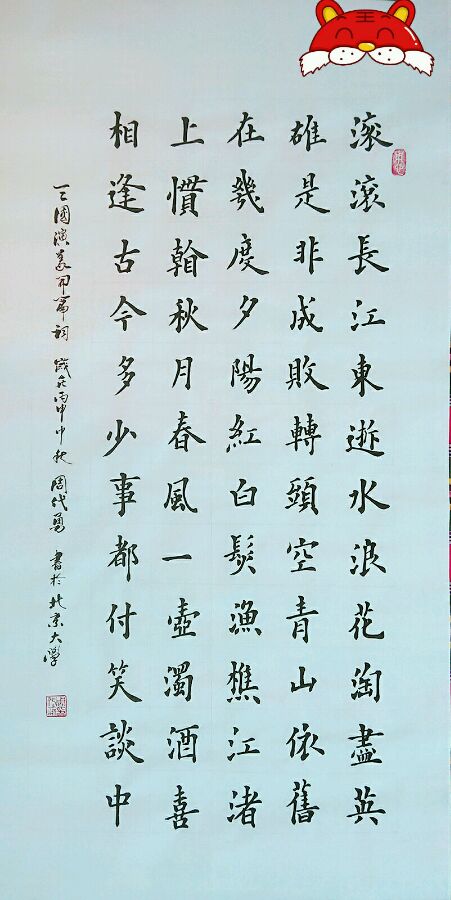 王
滚滚長江東逝水浪花淘盡英
雄是非成敗轉頭空青山依舊
在幾度夕陽紅白髯漁樵江渚
上慣看秋月春風一壺濁酒喜
相逢古今多少事都付笑談中
三國演義開篇詞 歲在丙申中秋 周代勇 書於北京大學